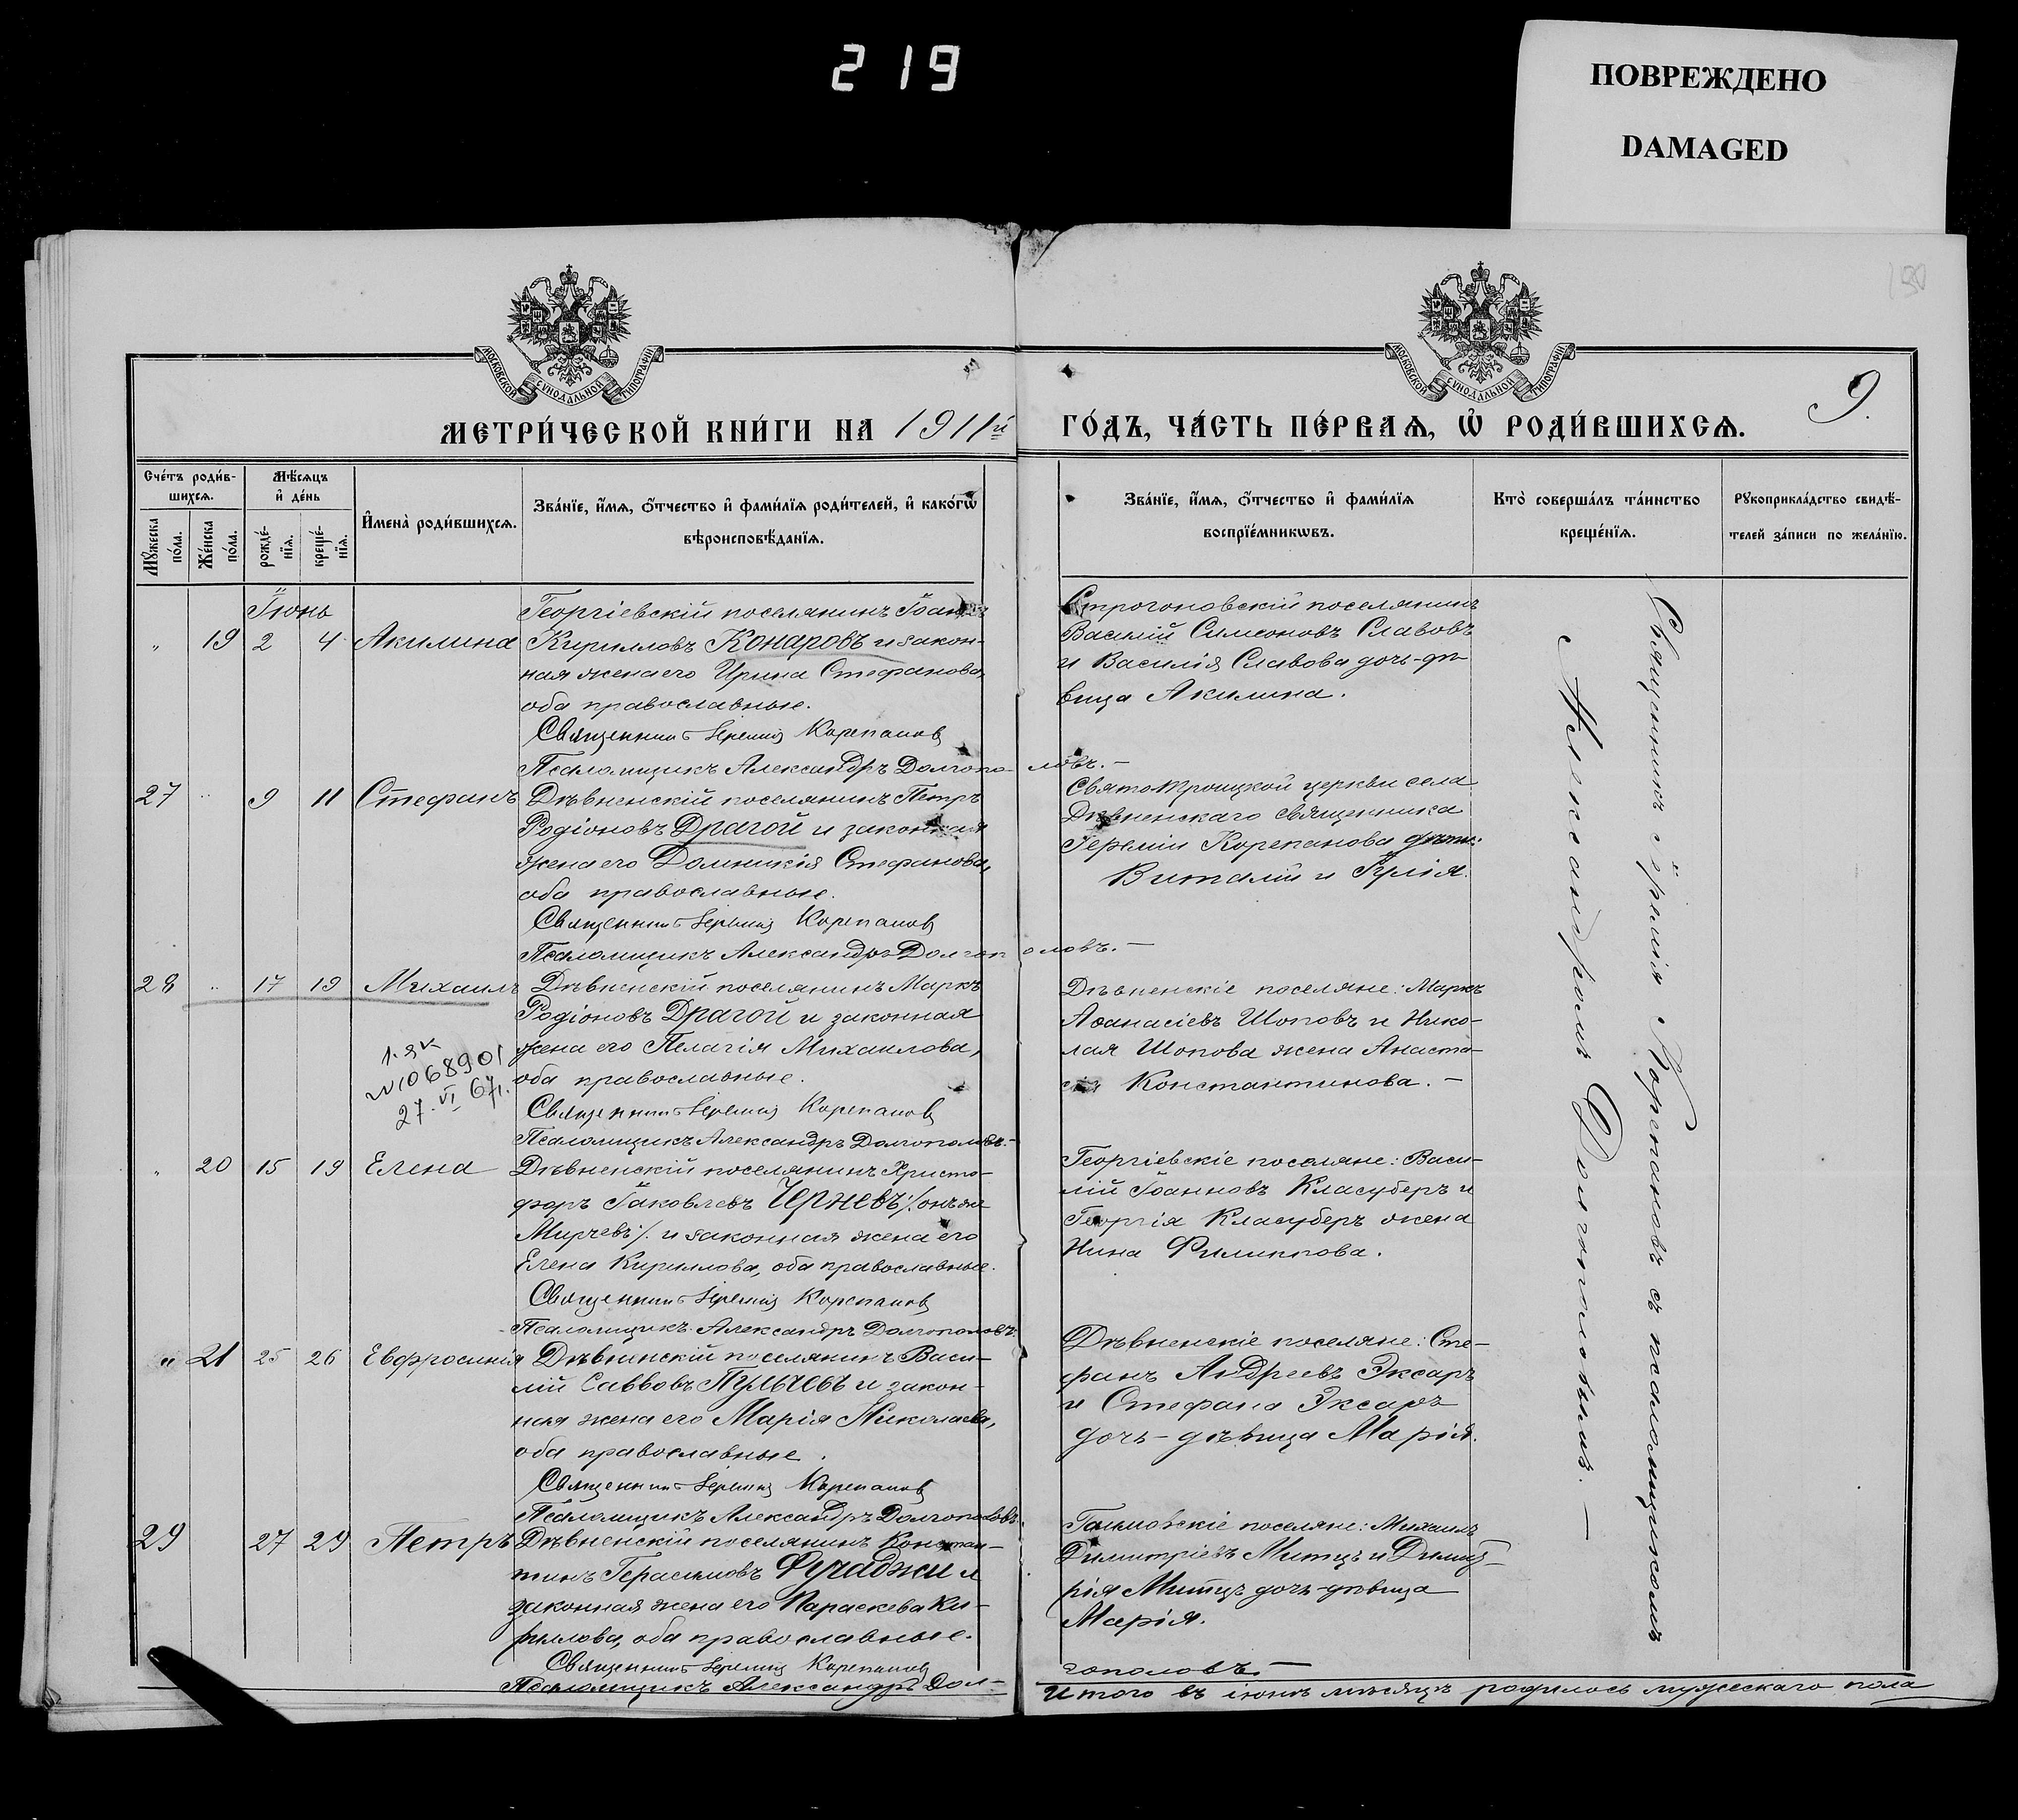 219
ПОВРЕЖДЕНО
DAMAGED
150
МОСКОВСКОЙ СѴНОДАЛЬНОЙ ТИПОГРАФІИ
МОСКОВСКОЙ СѴНОДАЛЬНОЙ ТИПОГРАФІИ
9.
МЕТРИ́ЧЕСКОЙ КНИ́ГИ НА 1911й
ГО́ДЪ, ЧА́СТЬ ПЕ́РВАѦ, Ѽ РОДИ́ВШИХСѦ.
Сче́тъ роди́в-
шихсѧ.
Мѣ́сѧцъ
и҆ де́нь
Мꙋ́жеска
по́ла.
Же́нска
по́ла.
рожде́-
нїѧ.
креще́-
нїѧ.
И҆мена̀ роди́вшихсѧ.
Зва́нїе, и҆́мѧ, ѻ҆́тчество и҆ фами́лїѧ роди́телей, и҆ како́гѡ
вѣроисповѣ́данїѧ.
Зва́нїе, и҆́мѧ, ѻ҆́тчество и҆ фами́лїѧ
воспрїе́мникѡвъ.
Кто̀ соверша́лъ та́инство
креще́нїѧ.
Рꙋкоприкла́дство свидѣ́-
телей за́писи по жела́нїю.
Іюнь
" 19 2 4 Акилина
Георгіевскій поселянинъ Іоаннъ
Кирилловъ Конаровъ и закон-
ная жена его Ирина Стефанова,
оба православные.
Священникъ Іеремія Корепанов
Псаломщикъ Александръ Долгополовъ.—
Строгоновскій поселянинъ
Василій Симеоновъ Славовъ
и Василія Славова дочь-дѣ-
вица Акилина.
27 " 9 11 Стефанъ
Дѣвненскій поселянинъ Петръ
Родіоновъ Драгой и законная
жена его Домникія Стефанова,
оба православные.
Священникъ Іеремія Корепанов
Псаломщикъ Александръ Долгополовъ.—
Свято Троицкой церкви села
Дѣвненскаго священника
Іереміи Корепанова дѣти:
Виталій и Юлія.
28 " 17 19 Михаилъ
Дѣвненскій поселянинъ Маркъ
Родіоновъ Драгой и законная
жена его Пелагія Михаилова,
оба православные.
Священникъ Іеремія Корепанов
Псаломщикъ Александръ Долгополовъ.—
068901
27. VI 67г.
Дѣвненскіе поселяне: Маркъ
Аѳанасіевъ Шоповъ и Нико-
лая Шопова жена Анаста-
сія Константинова.—
" 20 15 19 Елена
Дѣвненскій поселянинъ Христо-
форъ Іаковлевъ Черневъ /: онъ же
Мирчевъ /. и законная жена его
Елена Кириллова, оба православные.
Священникъ Іеремія Корепанов
Псаломщикъ Александръ Долгополовъ.
Георгіевскіе поселяне: Васи-
лій Іоанновъ Класуберъ и
Георгія Класуберъ жена
Нина Филиппова.
" 21 25 26 Евфросинія
Дѣвненскій поселянинъ Васи-
лій Саввовъ Пульчевъ и закон-
ная жена его Марія Николаева,
оба православные.
Священникъ Іеремія Корепанов
Псаломщикъ Александръ Долгополовъ.
Дѣвненскіе поселяне: Сте-
фанъ Андреевъ Эксаръ
и Стефана Эксаръ
дочь-дѣвица Марія.
29 27 29 Петръ
Дѣвненскій поселянинъ Констан-
тинъ Герасимовъ Фучаджи и
законная жена его Параскева Ки-
риллова, оба православные.
Священникъ Іеремія Корепанов
Псаломщикъ Александръ Дол-
гополовъ.—
поселяне: Михаилъ
Димитріевъ Митцъ и Димит-
рія Митцъ дочь-дѣвица
Марія.
Священникъ Іеремія Корепановъ съ псаломщикомъ
Александромъ Долгополовымъ.—
Итого въ іюнѣ мѣсяцѣ родилось мужескаго пола